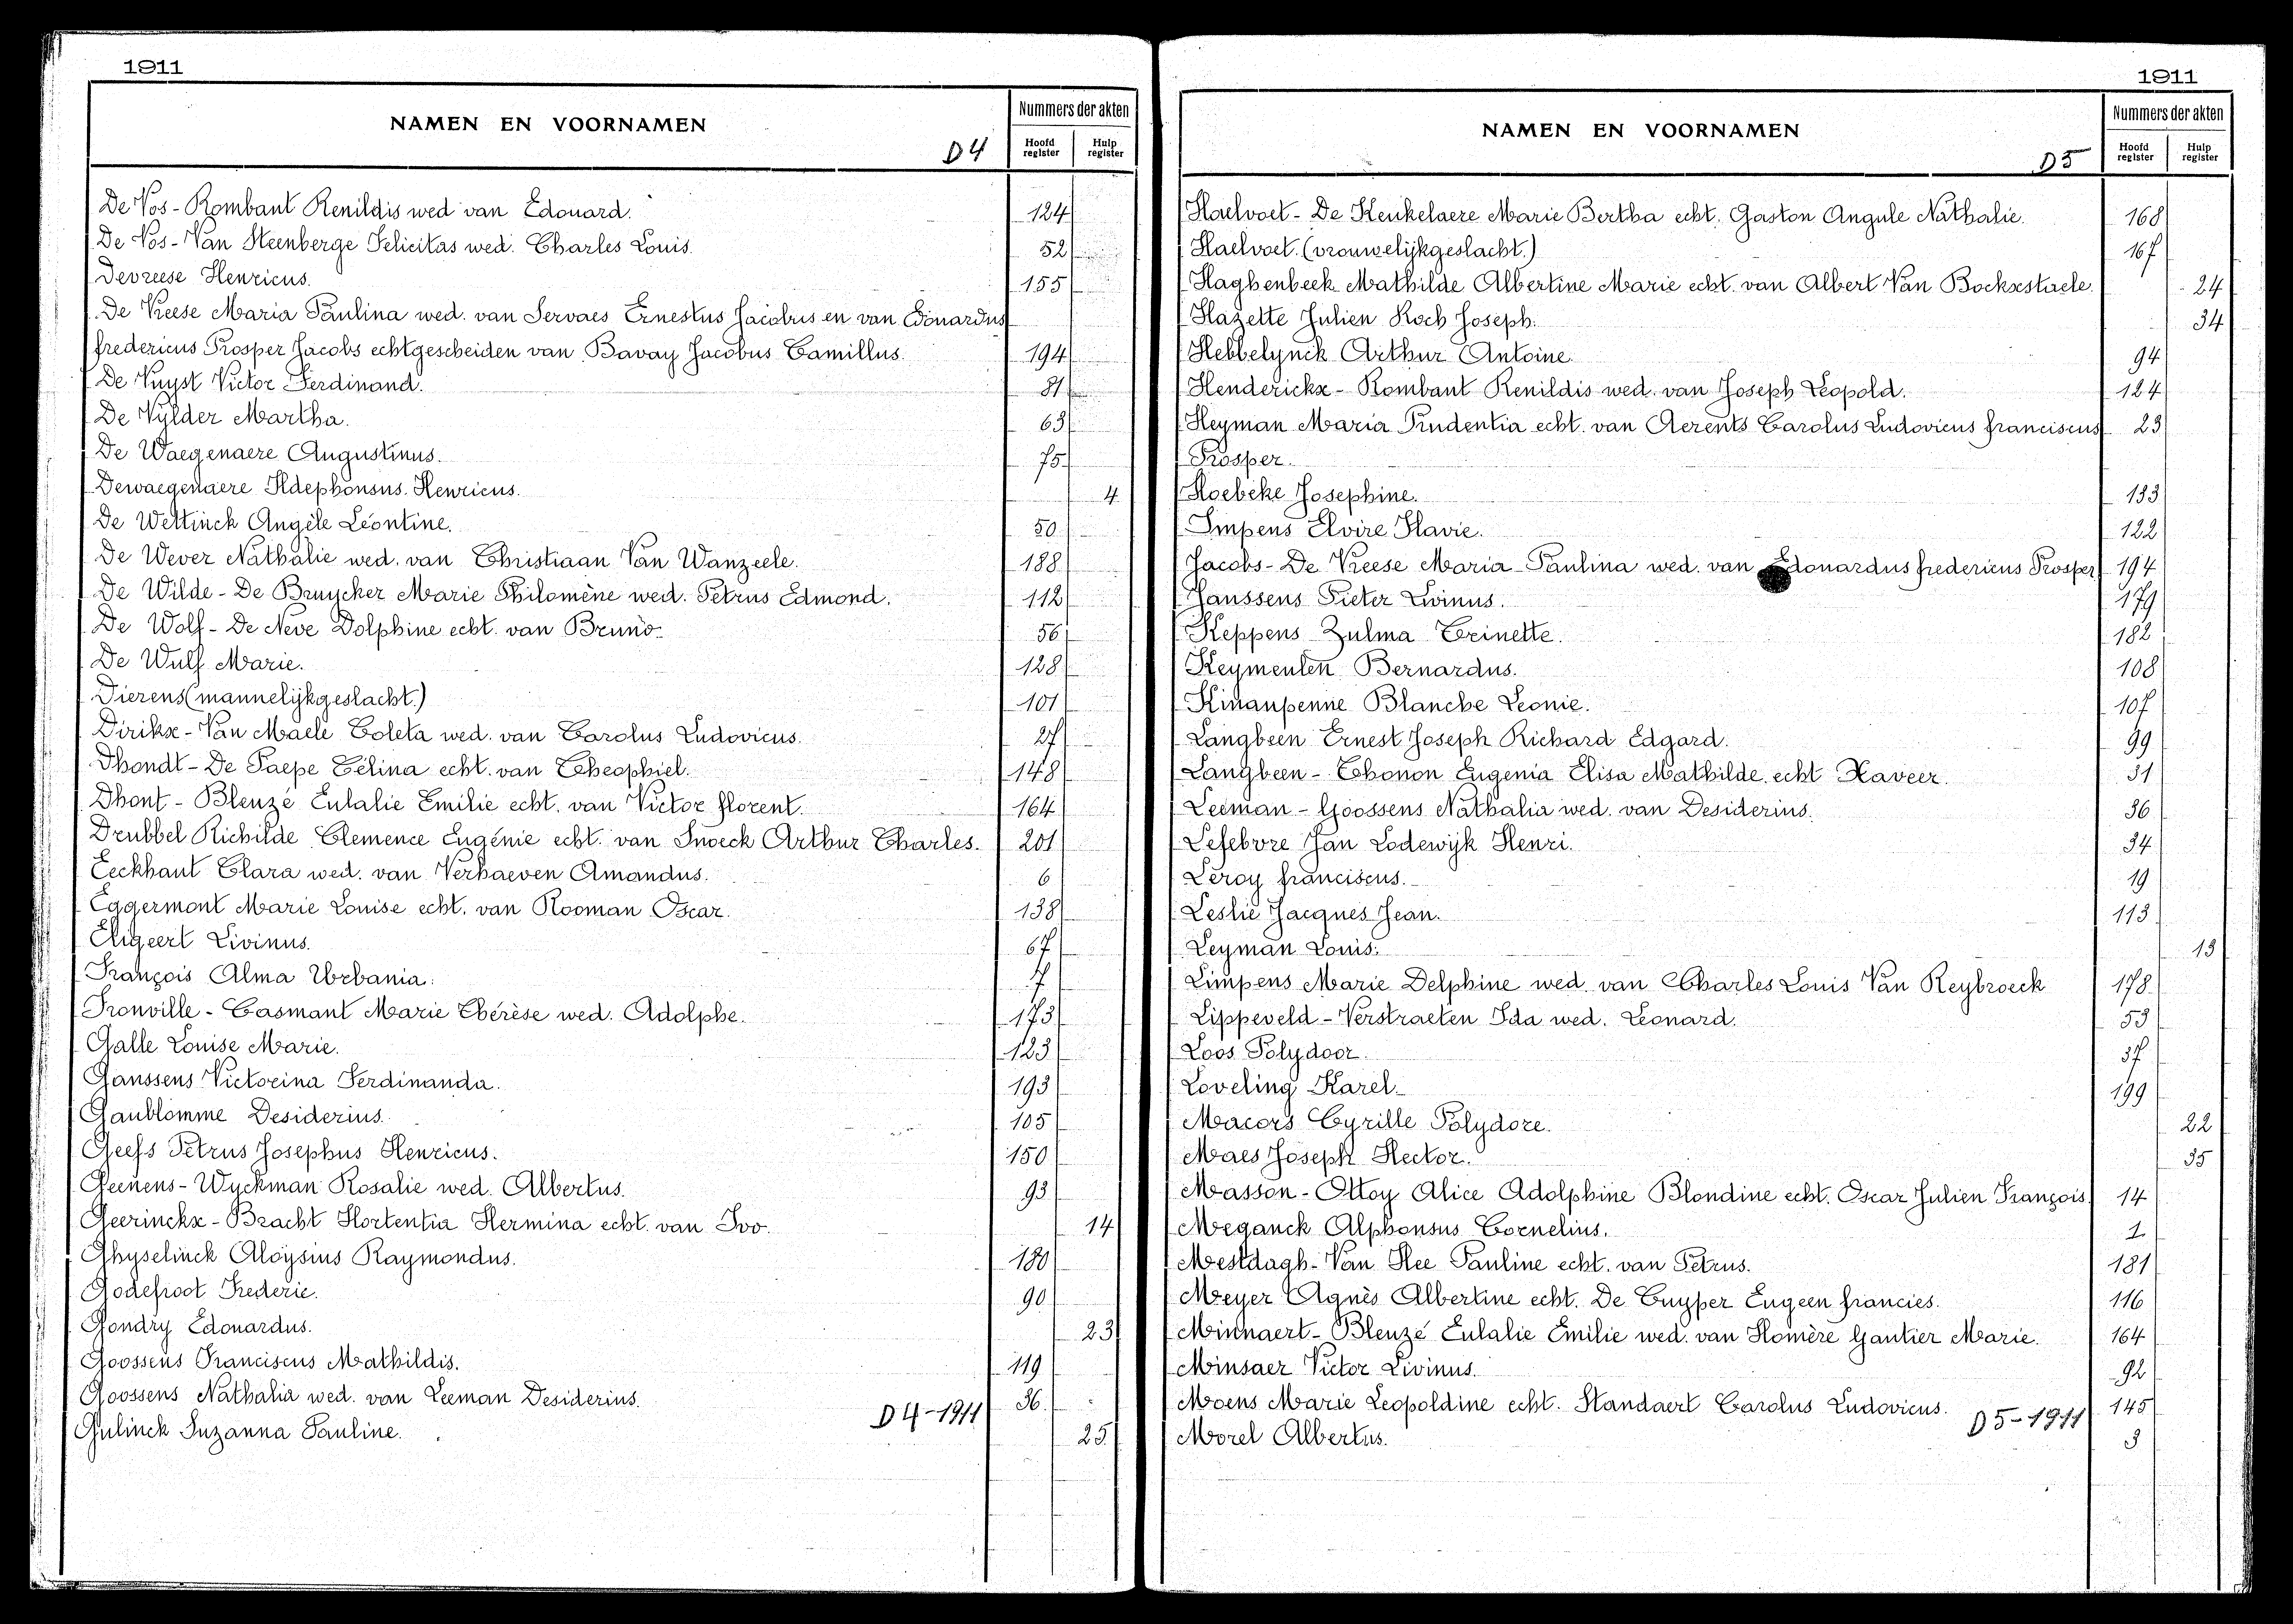 1911
NAMEN EN VOORNAMEN
D4
Nummers der akten
Hoofd register
Hulp register
De Vos - Rombaut Renildis wed van Edouard. 124
De Vos - Van Steenberge Felicitas wed. Charles Louis. 52
Devreese Henricus. 155
De Vreese Maria Paulina wed. van Servaes Ernestus Jacobus en van Edouardus
fredericus Prosper Jacobs echtgescheiden van Bavay Jacobus Camillus. 194
De Vuyst Victor Ferdinand. 81
De Vylder Martha. 63
De Waegenaere Augustinus. 75
Dewaegenaere Ildephonsus Henricus. 4
De Wettinck Angèle Léontine. 50
De Wever Nathalie wed. van Christiaan Van Wanzeele. 188
De Wilde - De Bruycker Marie Philomène wed. Petrus Edmond. 112
De Wolf - De Neve Dolphine echt. van Bruno. 56
De Wulf Marie. 128
Dierens (mannelijkgeslacht.) 101
Dirikx - Van Maele Coleta wed. van Carolus Ludovicus. 27
Dhondt - De Paepe Célina echt. van Theophiel. 148
Dhont - Blenzé Eulalie Emilie echt. van Victor florent. 164
Drubbel Richilde Clemence Eugénie echt. van Snoeck Arthur Charles. 201
Eeckhaut Clara wed. van Verhaeven Amandus. 6
Eggermont Marie Louise echt. van Rooman Oscar. 138
Eligeert Livinus. 67
François Alma Urbania. 7
Fronville - Casmant Marie Thérèse wed. Adolphe. 173
Galle Louise Marie. 123
Ganssens Victorina Ferdinanda. 193
Gaublomme Desiderius. 105
Geefs Petrus Josephus Henricus. 150
Geenens - Wyckman Rosalie wed. Albertus. 93
Geerinckx - Bracht Hortentia Hermina echt. van Ivo. 14
Ghyselinck Aloysius Raymondus. 180
Godefroot Frederic. 90
Gondry Edouardus. 23
Goossens Franciscus Mathildis. 119
Goossens Nathalia wed. van Leeman Desiderius. 36
Gulinck Suzanna Pauline. 25
D4-1911
1911
NAMEN EN VOORNAMEN
D5
Nummers der akten
Hoofd register
Hulp register
Haelvoet - De Keukelaere Marie Bertha echt. Gaston Angule Nathalie. 168
Haelvoet. (vrouwelijkgeslacht.) 167
Haghenbeek Mathilde Albertine Marie echt. van Albert Van Bockxstaele. 24
Hazette Julien Roch Joseph. 34
Hebbelynck Arthur Antoine. 94
Henderickx - Rombaut Renildis wed. van Joseph Leopold. 124
Heyman Maria Prudentia echt. van Aerents Carolus Ludovicus franciscus 23
Prosper.
Hoebeke Josephine. 133
Impens Elvire Flavie. 122
Jacobs - De Vreese Maria Paulina wed. van Edouardus fredericus Prosper 194
Janssens Pieter Livinus. 179
Keppens Zulma Trinette. 182
Keymeulen Bernardus. 108
Kinaupenne Blanche Leonie. 107
Langbeen Ernest Joseph Richard Edgard. 99
Langbeen - Thonon Eugenia Elisa Mathilde echt Xaveer. 31
Leeman - Goossens Nathalia wed. van Desiderius. 36
Lefebvre Jan Lodewijk Henri. 34
Leroy franciscus. 19
Leslie Jacques Jean. 113
Leyman Louis. 13
Limpens Marie Delphine wed. van Charles Louis Van Reybroeck 178
Lippeveld - Verstraeten Ida wed. Leonard. 53
Loos Polydoor. 37
Loveling Karel. 199
Macors Cyrille Polydore. 22
Maes Joseph Hector. 35
Masson - Ottoy Alice Adolphine Blondine echt. Oscar Julien François. 14
Meganck Alphonsus Cornelius. 1
Mestdagh - Van Hee Pauline echt. van Petrus. 181
Meyer Agnès Albertine echt. De Cuyper Eugeen francies. 116
Minnaert - Blenzé Eulalie Emilie wed. van Homère Gantier Marie. 164
Minsaer Victor Livinus. 92
Moens Marie Leopoldine echt. Standaert Carolus Ludovicus. 145
Morel Albertus. 3
D5-1911